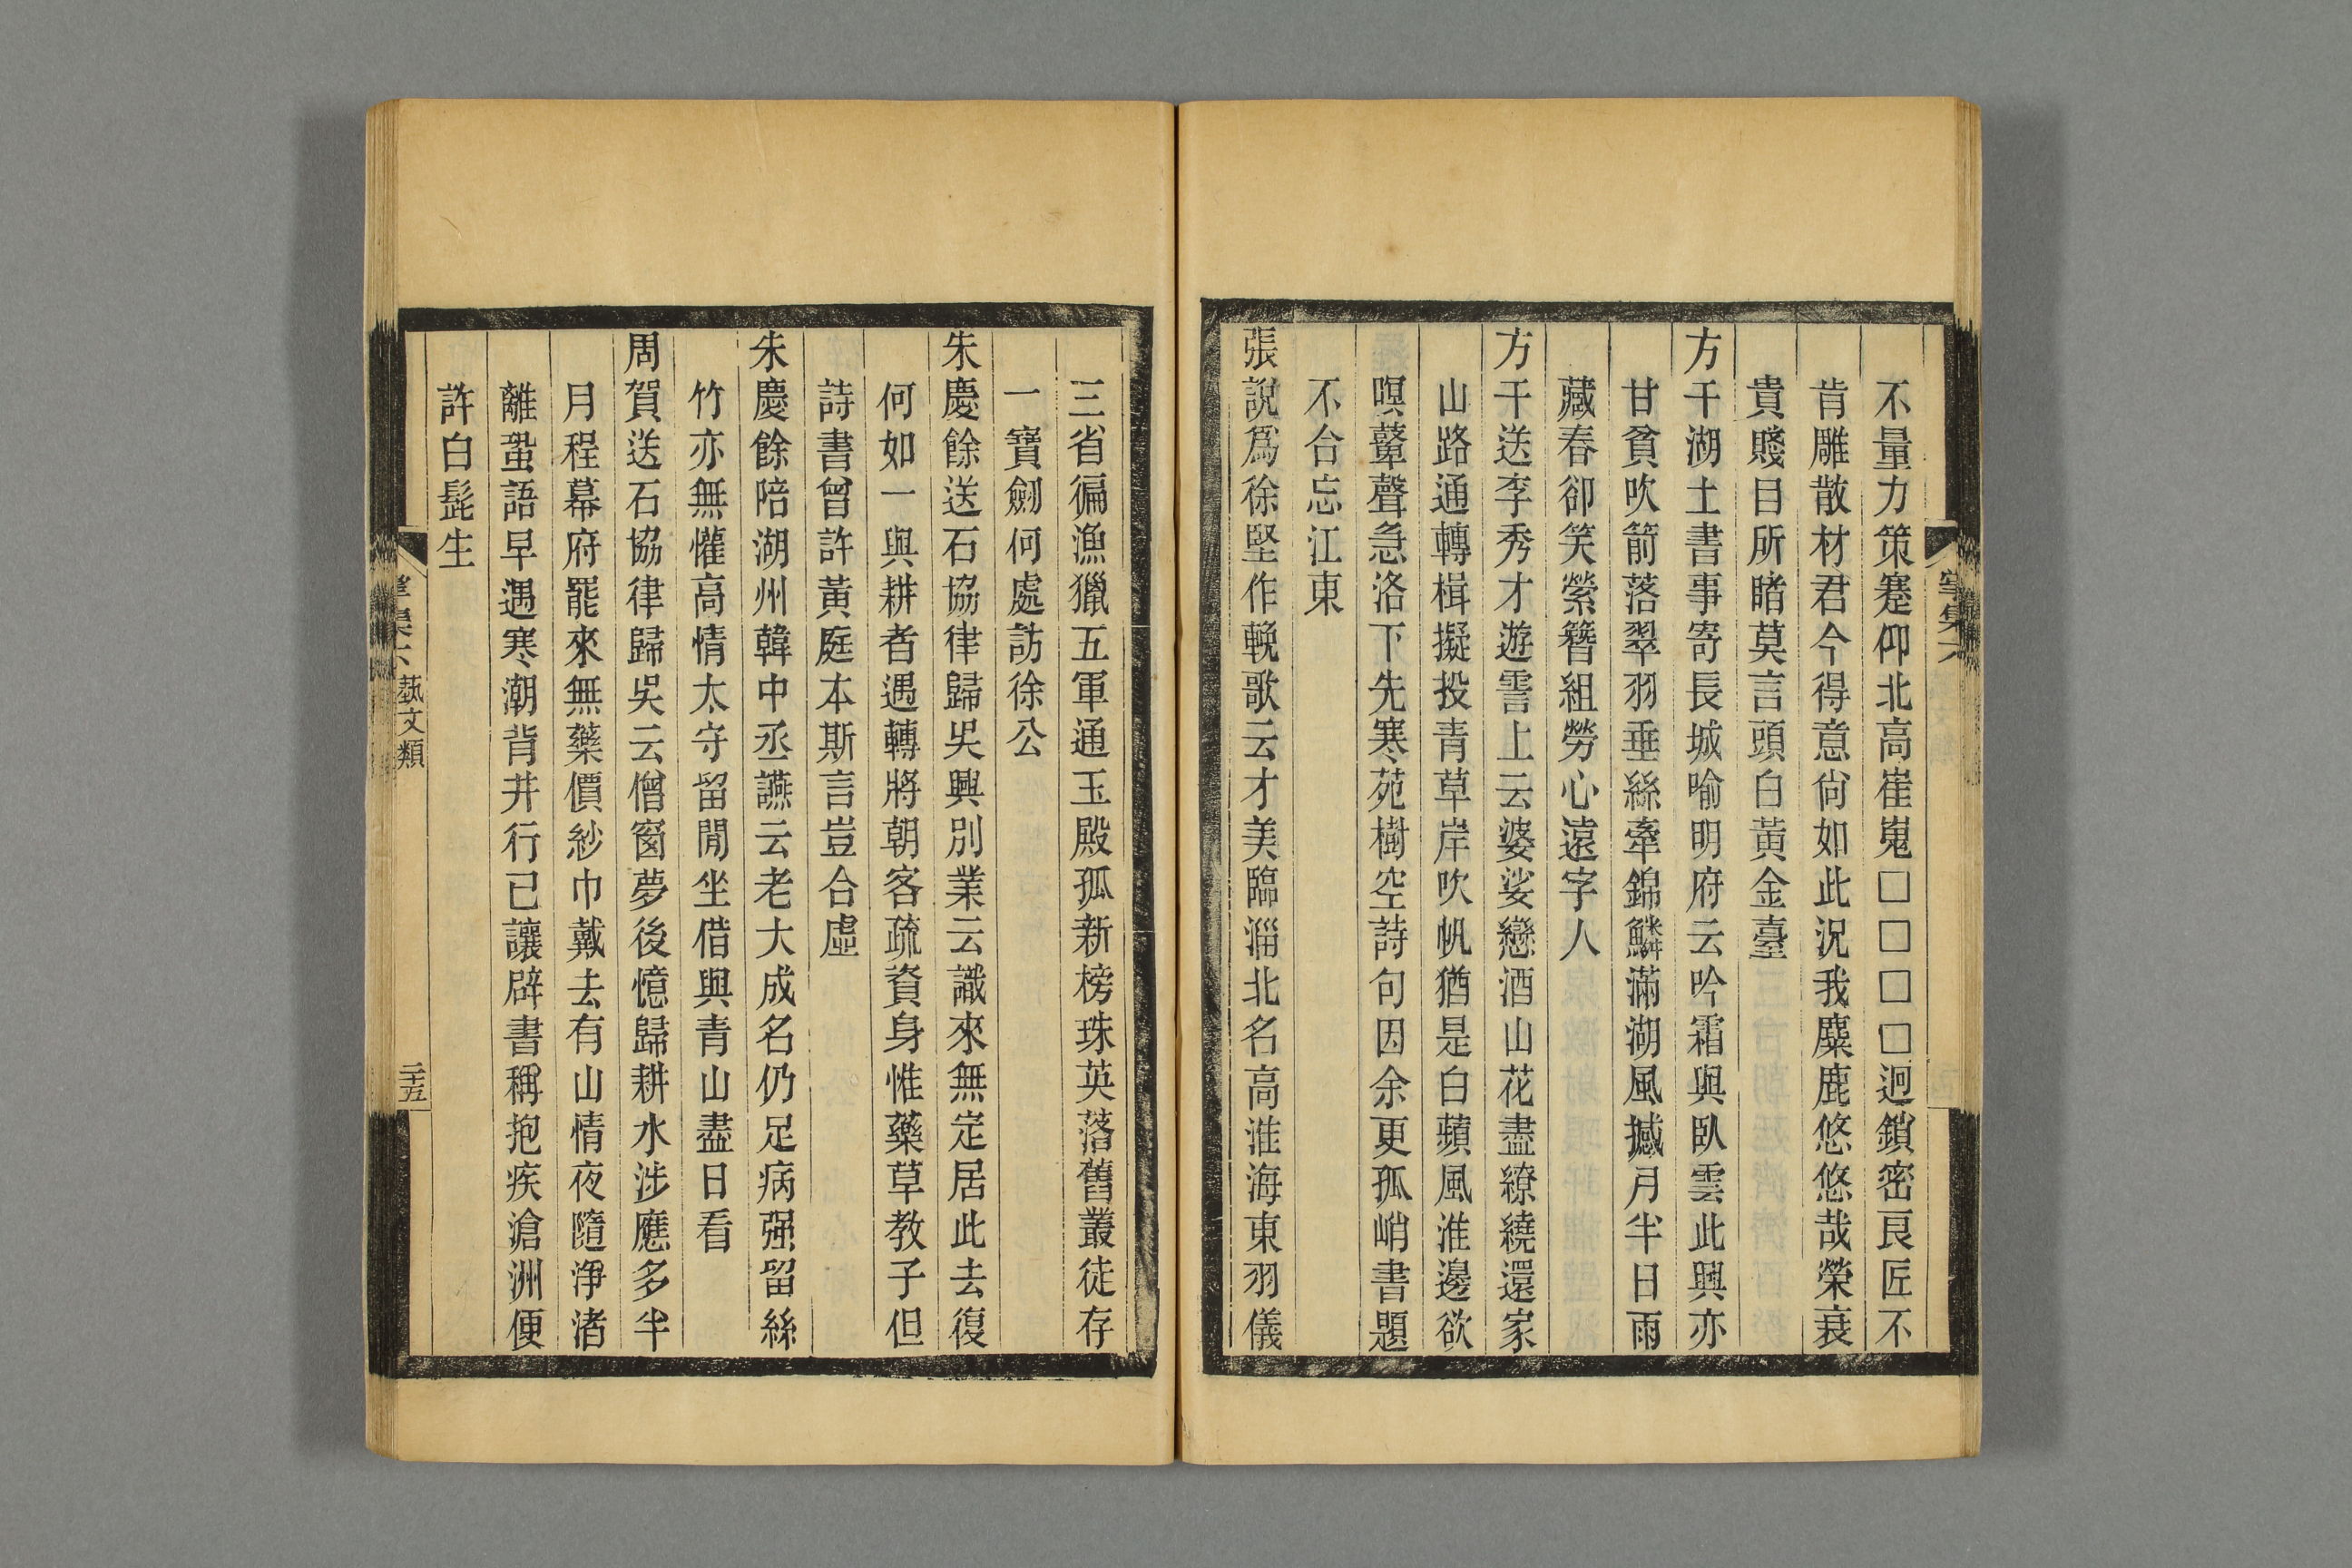 不量力策蹇仰北高崔嵬□□□□迥鎖密良匠不
肯雕散材君今得意尙如此況我麋鹿悠悠哉榮衰
貴賤目所睹莫言頭白黃金臺
方干湖上書事寄長城喻明府云吟霜與臥雲此興亦
甘貧吹箭落翠羽垂絲牽錦鱗滿湖風撼月半日雨
藏春卻笑縈簪組勞心遠字人
方干送李秀才遊霅上云婆娑戀酒山花盡繚繞還家
山路通轉楫擬投青草岸吹帆猶是白蘋風淮邊欲
暝鼙聲急洛下先寒苑樹空詩句因余更孤峭書題
不合忘江東
張說爲徐堅作輓歌云才美臨淄北名高淮海東羽儀
三省徧漁獵五軍通玉殿孤新榜珠英落舊叢徒存
一寶劒何處訪徐公
朱慶餘送石協律歸吳興別業云識來無定居此去復
何如一與耕者遇轉將朝客疏資身惟藥草教子但
詩書曾許黃庭本斯言豈合虛
朱慶餘陪湖州韓中丞讌云老大成名仍足病强留絲
竹亦無懽高情太守留閒坐借與青山盡日看
周賀送石協律歸吳云僧窗夢後憶歸耕水涉應多半
月程幕府罷來無藥價紗巾戴去有山情夜隨淨渚
離蛩語早遇寒潮背井行已讓辟書稱抱疾滄洲便
許白髭生
掌集六
藝文類
二十五